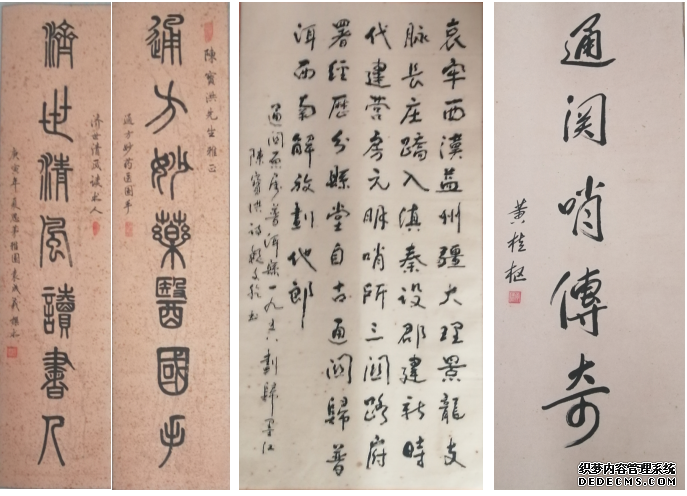 通方妙藥醫國手
陳寶洪先生雅正
通方妙药医国手
濟世清風讀書人
哀牢西漢益州疆大理景龍支
脉長庄蹻入滇秦設郡建新時
代建营房元明哨所三関路府
署经歷分縣堂自古通関歸普
洱西南解放划他郎
通関原属普洱縣一九五八劃歸墨江
陳寶洪诗
通関哨傳奇
黄桂枢
织梦内容管理系统
DEDECMS.COM